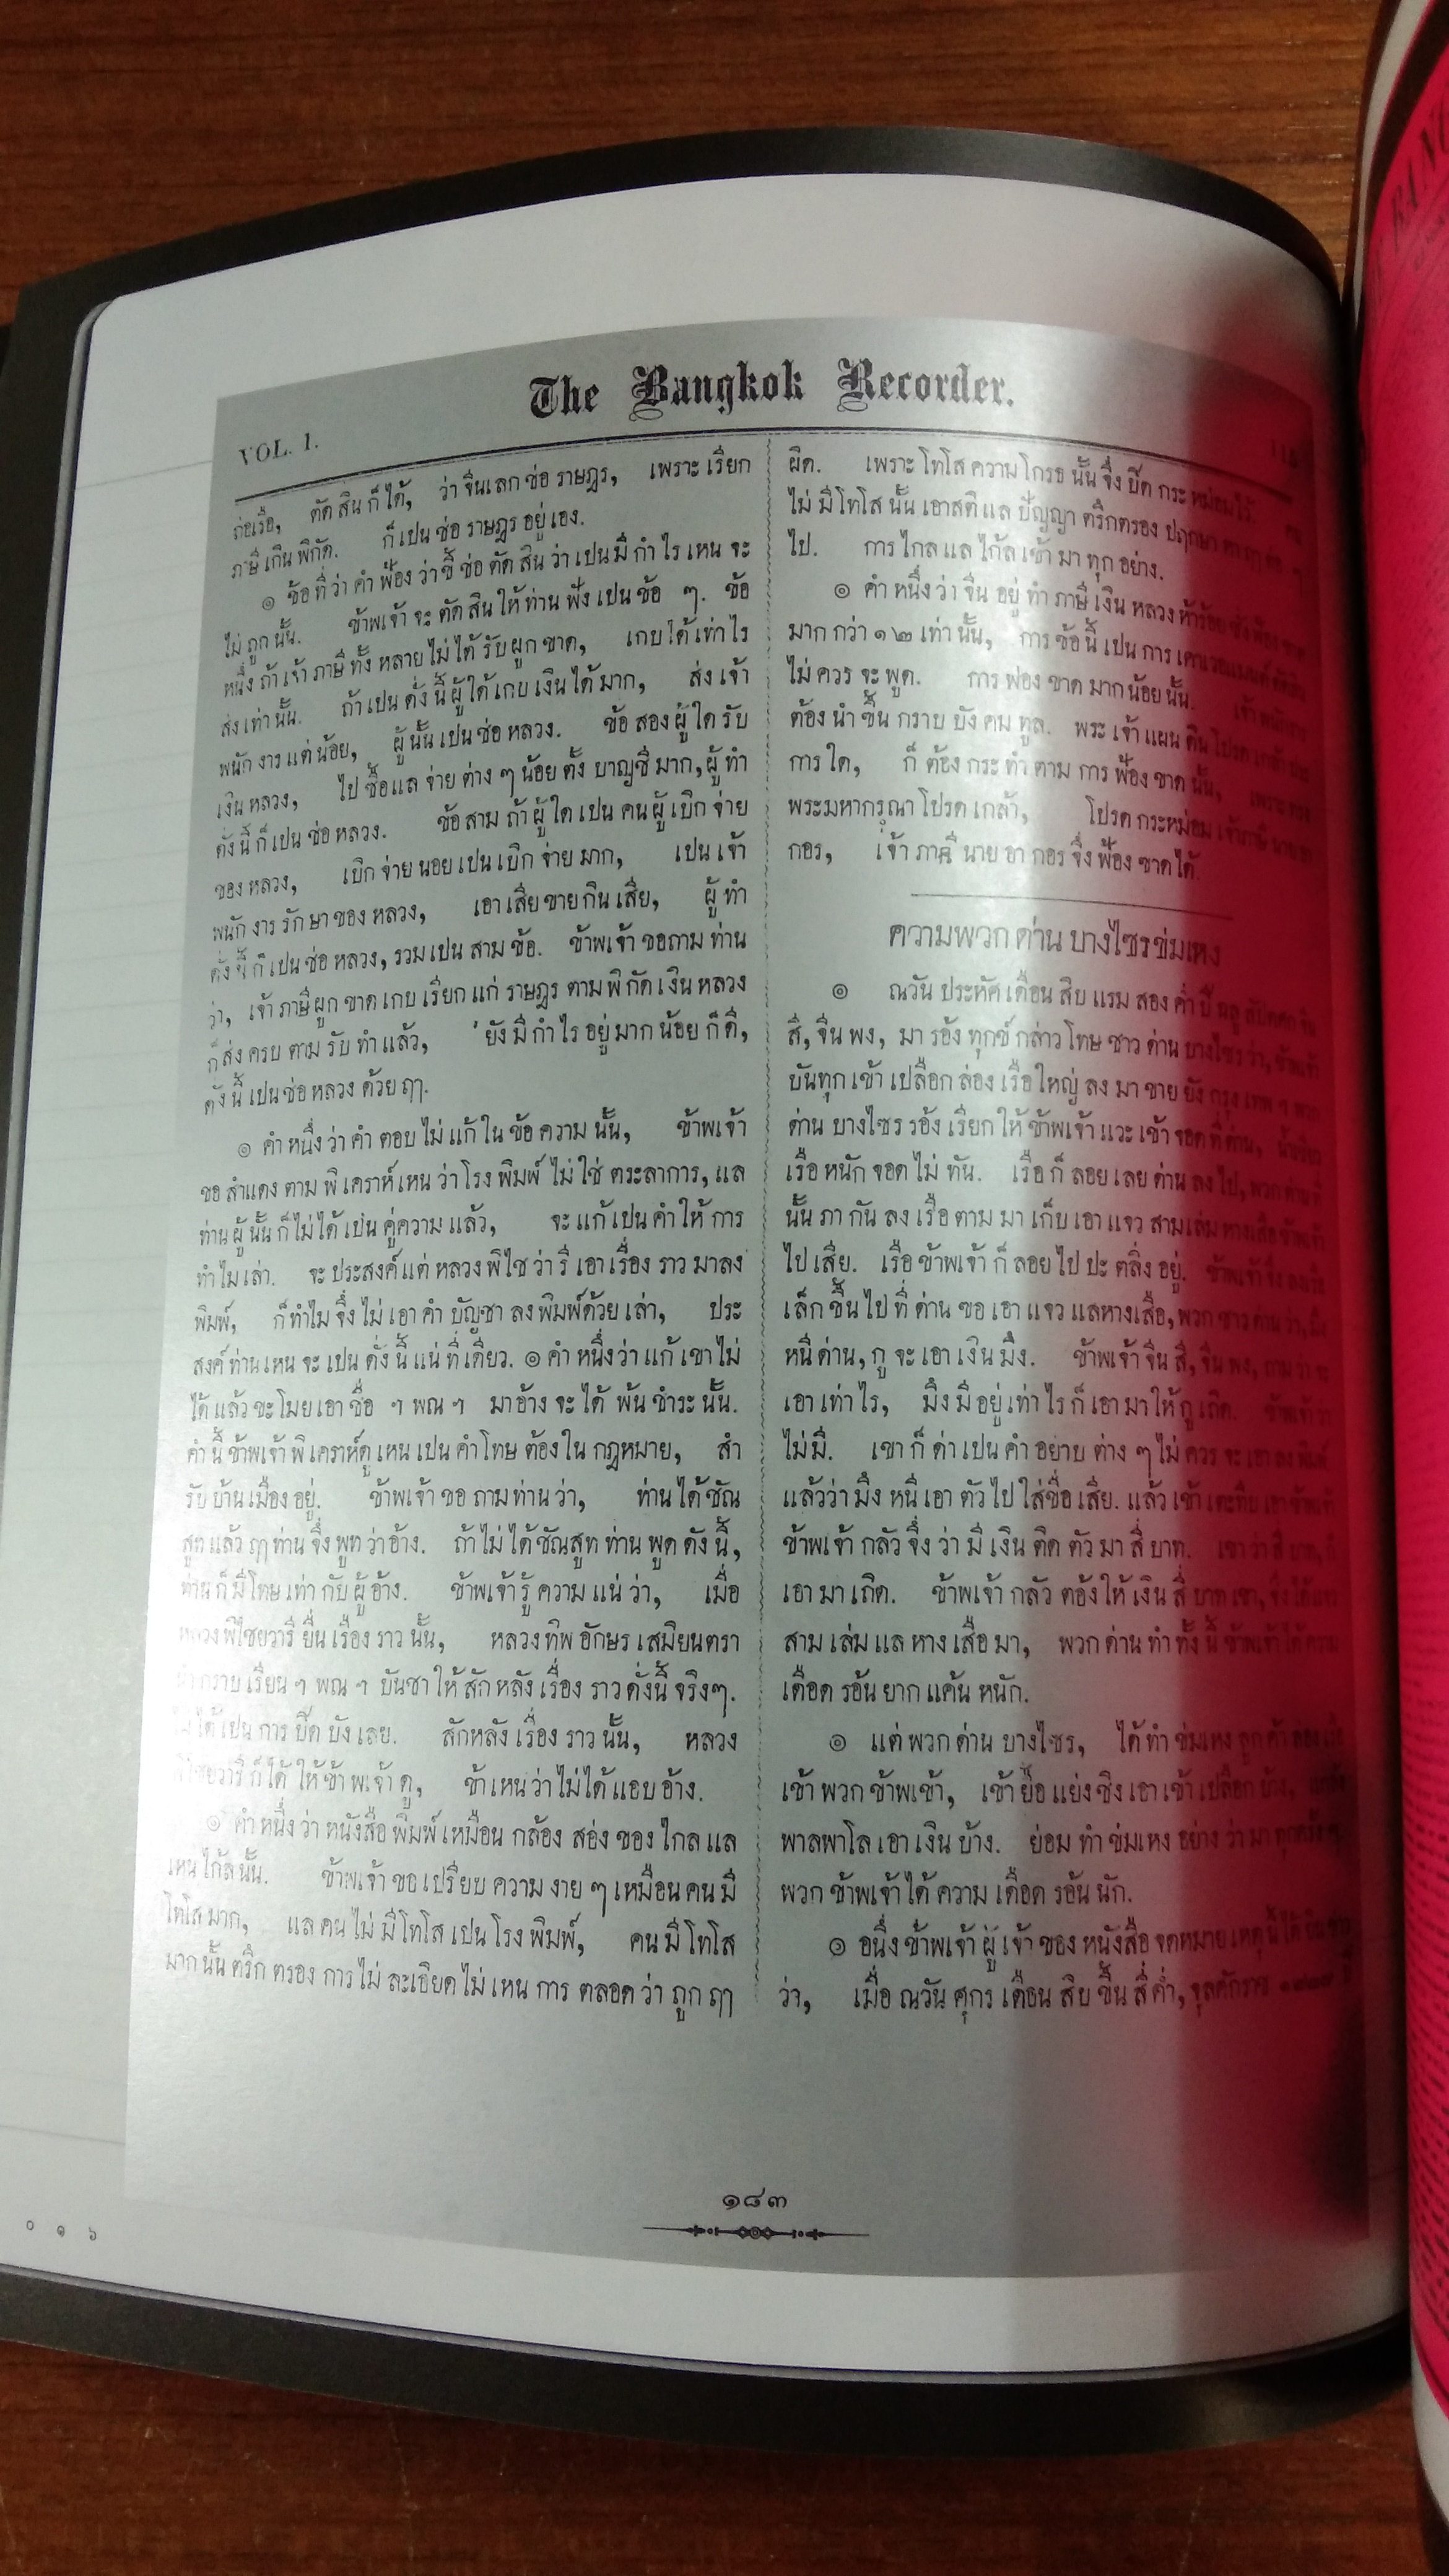 The Bangkok Recorder.
VOL. 1.
ก่อเรื้อ, ตัด สิน ก็ ได้, ว่า จีนเลก ช่อ ราษฎร, เพราะ เรียก
ภาษี เกินพิกัด. ก็ เปน ช่อ ราษฎร อยู่ เอง.
๏ ข้อ ที่ ว่า คำ ฟ้อง ว่า ชี้ ช่อ ตัด สิน ว่า เปน มี กำ ไร เหน จะ
ไม่ ถูก นั้น. ข้าพเจ้า จะ ตัด สิน ให้ ท่าน ฟัง เปน ข้อ ๆ. ข้อ
หนึ่ง ถ้า เจ้า ภาษี ทั้ง หลาย ไม่ ได้ รับ ผูก ขาด, เกบ ได้ เท่า ไร
ส่ง เท่า นั้น. ถ้า เปน ดั่ง นี้ ผู้ ใด้ เกบ เงิน ได้ มาก, ส่ง เจ้า
พนัก งาร แต่ น้อย, ผู้ นั้น เปน ช่อ หลวง. ข้อ สอง ผู้ ใด รับ
เงิน หลวง, ไป ซื้อ แล จ่าย ต่าง ๆ น้อย ตั้ง บาญชี มาก, ผู้ ทำ
ดั่ง นี้ ก็ เปน ช่อ หลวง. ข้อ สาม ถ้า ผู้ ใด เปน คน ผู้ เบิก จ่าย
ของ หลวง, เบิก จ่าย นอย เปน เบิก จ่าย มาก, เปน เจ้า
พนัก งาร รัก ษา ของ หลวง, เอา เสีย ขาย กิน เสีย, ผู้ ทำ
ดั่ง นี้ ก็ เปน ช่อ หลวง, รวม เปน สาม ข้อ. ข้าพเจ้า ขอ ถาม ท่าน
ว่า, เจ้า ภาษี ผูก ขาด เกบ เรียก แก่ ราษฎร ตาม พิ กัด เงิน หลวง
ก็ ส่ง ครบ ตาม รับ ทำ แล้ว, ยัง มี กำ ไร อยู่ มาก น้อย ก็ ดี,
ดั่ง นี้ เปน ช่อ หลวง ด้วย ฤๅ.
๏ คำ หนึ่ง ว่า คำ ตอบ ไม่ แก้ ใน ข้อ ความ นั้น, ข้าพเจ้า
ขอ สำแดง ตาม พิ เคราห์ เหน ว่า โรง พิมพ์ ไม่ ใช่ ตระลาการ, แล
ท่าน ผู้ นั้น ก็ ไม่ ได้ เป่น คู่ความ แล้ว, จะ แก้ เปน คำ ให้ การ
ทำ ไม เล่า. จะ ประสงค์ แต่ หลวง พิไช ว่า รี เอา เรื่อง ราว มา ลง
พิมพ์, ก็ ทำไม จึ่ง ไม่ เอา คำ บัญชา ลง พิมพ์ ด้วย เล่า, ประ
สงค์ ท่าน เหน จะ เปน ดั่ง นี้ แน่ ที่ เดียว. ๏ คำ หนึ่ง ว่า แก้ เขา ไม่
ได้ แล้ว ขะโมย เอา ชื่อ ฯ พณ ฯ มา อ้าง จะ ได้ พ้น ชำระ นั้น.
คำ นี้ ข้าพเจ้า พิ เคราห์ ดู เหน เปน คำ โทษ ต้อง ใน กฎหมาย, สำ
รับ บ้าน เมือง อยู่. ข้าพเจ้า ขอ ถาม ท่าน ว่า, ท่าน ได้ ชัณ
สูท แล้ว ฤๅ ท่าน จึ่ง พูท ว่า อ้าง. ถ้า ไม่ ได้ ชัณสูท ท่าน พูด ดัง นี้,
ท่าน ก็ มี โทษ เท่า กับ ผู้ อ้าง. ข้าพเจ้า รู้ ความ แน่ ว่า, เมื่อ
หลวง พิไชยวารี ยื่น เรื่อง ราว นั้น, หลวง ทิพ อักษร เสมียนตรา
กราบ เรียน ฯ พณ ฯ บันชา ให้ สัก หลัง เรื่อง ราว ดั่งนี้ จริงๆ.
ได้ เปน การ ปิด บัง เลย. สักหลัง เรื่อง ราว นั้น, หลวง
ก็ ได้ ให้ ข้า พเจ้า ดู, ข้า เหน ว่า ไม่ ได้ แอบ อ้าง.
๏ คำ หนึ่ง ว่า หนังสือ พิมพ์ เหมือน กล้อง ส่อง ของ ไกล แล
เหน ไก้ล นั้น. ข้าพเจ้า ขอ เปรียบ ความ งาย ๆ เหมือน คน มี
โทโส มาก, แล คน ไม่ มี โทโส เปน โรง พิมพ์, คน มี โทโส
มาก นั้น ตริก ตรอง การ ไม่ ละเอียด ไม่ เหน การ ตลอด ว่า ถูก ฤๅ
ผิด. เพราะ โทโส ความ โกรธ นั้น จึ่ง ปิด กระ หม่อม ไว้.
ไม่ มี โทโส นั้น เอา สติ แล ปัญญา ตริกตรอง ปฤกษา
ไป. การ ไกล แล ไก้ล เข้า มา ทุก อย่าง.
๏ คำ หนึ่ง ว่า จีน อยู่ ทำ ภาษี เงิน หลวง ห้าร้อย
มาก กว่า ๑๒ เท่า นั้น, การ ข้อ นี้ เปน การ
ไม่ ควร จะ พูด. การ ฟอง ขาด มาก น้อย นั้น.
ต้อง นำ ขึ้น กราบ บัง คม ทูล. พระ เจ้า แผน ดิน โปรด
การ ใด, ก็ ต้อง กระ ทำ ตาม การ ฟ้อง ขาด นั้น,
พระมหากรุณา โปรด เกล้า, โปรด กระหม่อม
กอร, เจ้า ภาษี นาย อา กอร จึ่ง ฟ้อง ขาด ได้
ความพวก ด่าน บางไซร ข่มเหง
๏ ณวัน ประหัศ เดือน สิบ แรม สอง ค่ำ ปี
สี, จีน พง, มา ร้อง ทุกข์ กล่าว โทษ ชาว ด่าน บางไซร ว่า,
บันทุก เข้า เปลือก ล่อง เรือ ใหญ่ ลง มา ขาย ยัง กรุง เทพ ฯ
ด่าน บางไซร ร้อง เรียก ให้ ข้าพเจ้า แวะ เข้า จอด ที่ ด่าน,
เรือ หนัก จอด ไม่ ทัน. เรือ ก็ ลอย เลย ด่าน ลง ไป,
นั้น ภา กัน ลง เรือ ตาม มา เก็บ เอา แจว สาม เล่ม หางเสือ
ไป เสีย. เรือ ข้าพเจ้า ก็ ลอย ไป ปะ ตลิ่ง อยู่.
เล็ก ขึ้น ไป ที่ ด่าน ขอ เอา แจว แลหางเสือ, พวก ชาว ด่าน ว่า,
หนี ด่าน, กู จะ เอา เงิน มึง. ข้าพเจ้า จีน สี, จีน พง,
เอา เท่า ไร, มึง มี อยู่ เท่า ไร ก็ เอา มา ให้ กู เถิด.
ไม่ มี. เขา ก็ ด่า เปน คำ อยาบ ต่าง ๆ ไม่ ควร จะ เอา
แล้ว ว่า มึง หนี เอา ตัว ไป ใส่ ชื่อ เสีย. แล้ว เข้า
ข้าพเจ้า กลัว จึ่ง ว่า มี เงิน ติด ตัว มา สี่ บาท.
เอา มา เถิด. ข้าพเจ้า กลัว ต้อง ให้ เงิน สี่ บาท
สาม เล่ม แล หาง เสือ มา, พวก ด่าน ทำ ทั้ง นี้
เดือด ร้อน ยาก แค้น หนัก.
๏ แต่ พวก ด่าน บางไซร, ได้ ทำ ข่มเหง
เข้า พวก ข้าพเข้า, เข้า ยื้อ แย่ง ชิง เอา เข้า เปลือก บ้าง,
พาลพาโล เอา เงิน บ้าง. ย่อม ทำ ข่มเหง อย่าง ว่า มา
พวก ข้าพเจ้า ได้ ความ เดือด ร้อน นัก.
๏ อนึ่ง ข้าพเจ้า ผู้ เจ้า ของ หนังสือ จดหมาย เหตุ นี้ ได้
ว่า, เมื่อ ณวัน ศุกร เดือน สิบ ขึ้น สี่ ค่ำ, จุลศักราช
๑๘๓
๐๑๖